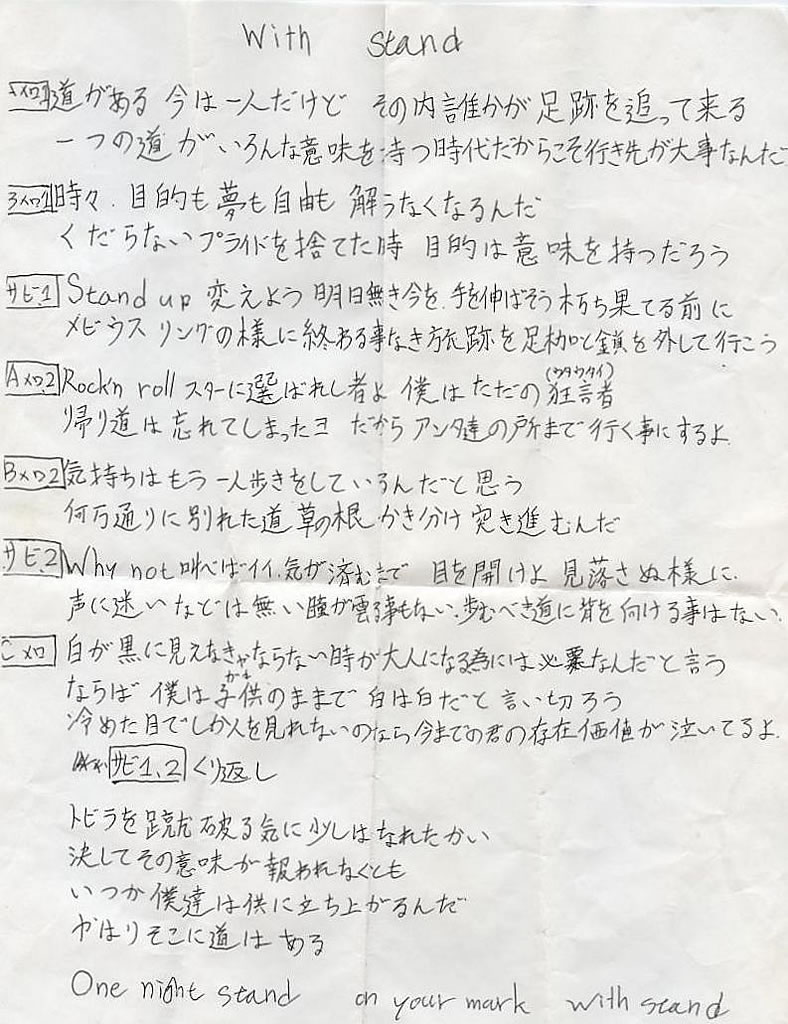 With stand
Aメロ1 道がある 今は一人だけど その内誰かが足跡を追って来る
一つの道がいろんな意味を持つ時代だからこそ行き先が大事なんだ
Bメロ1 時々、目的も夢も自由も 解うなくなるんだ
くだらないプライドを捨てた時 目的は意味を持つだろう
サビ.1 Stand up 変えよう 明日無き今を、手を伸ばそう朽ち果てる前に
メビウスリングの様に終わる事なき旅跡を足枷と鎖を外して行こう
Aメロ.2 Rock'n roll スターに選ばれし者よ 僕はただの狂言者(ウタウタイ)
帰り道は忘れてしまったヨ だからアンタ達の所まで行く事にするよ.
Bメロ2 気持ちはもう一人歩きをしているんだと思う
何万通りに別れた道草の根かき分け突き進むんだ
サビ.2 Why not 叫べばイイ、気が済むまで 目を開けよ 見落さぬ様に、
声に迷いなどは無い瞳が雲る事もない、歩むべき道に背を向ける事はない、
Cメロ 白が黒に見えなきゃならない時が大人になる為には必要なんだと言う
ならば 僕は子供のままで 白は白だと言い切ろう
冷めた目でしか人を見れないのなら今までの君の存在価値が泣いてるよ.
サビ1、2 くり返し
トビラを蹴破る気に少しはなれたかい
決してその意味が報われなくとも
いつか僕達は供に立ち上がるんだ
やはりそこに道はある
One night stand on your mark with stand